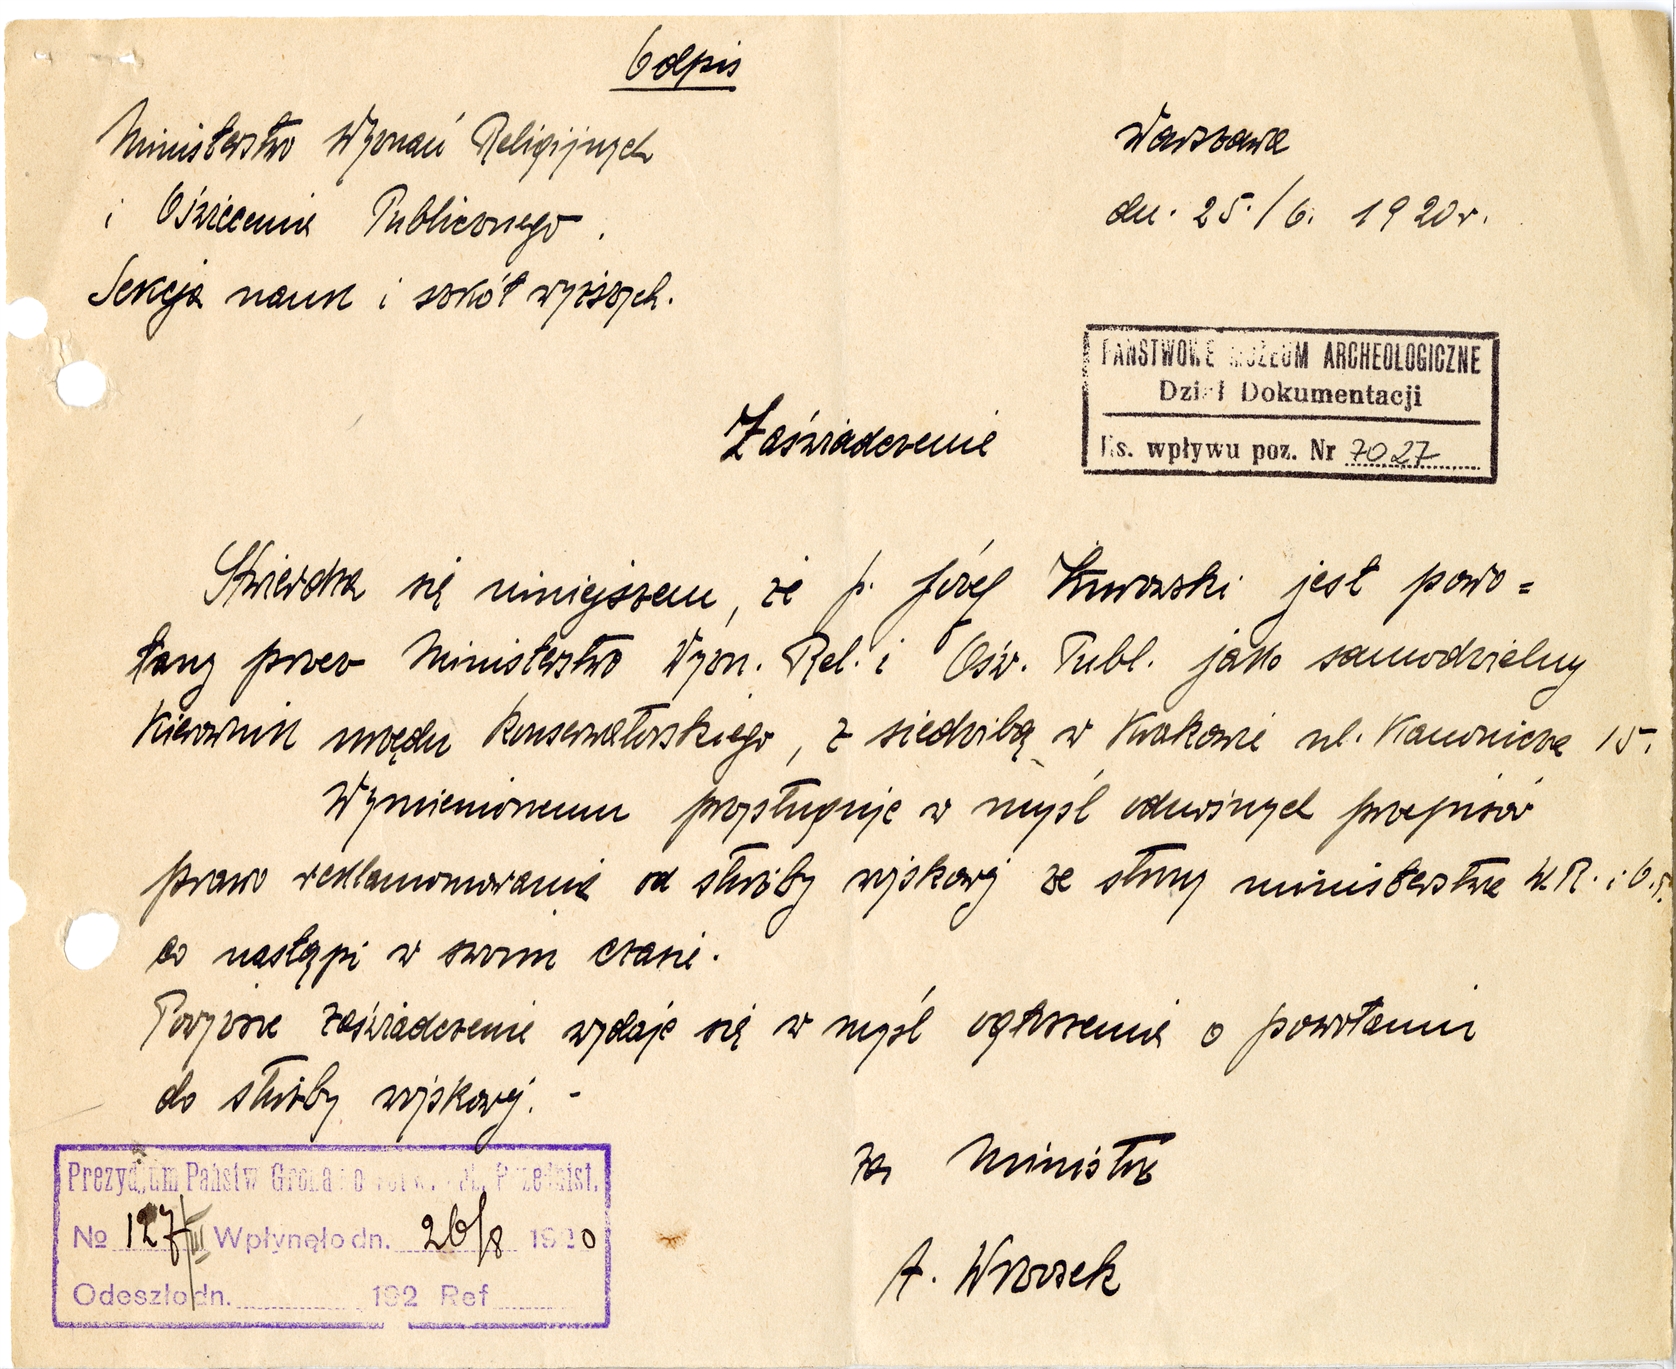 Odpis
Ministerstwo Wyznań Religijnych
i Oświecenia Publicznego.
Sekcja nauk i szkół wyższych.
Warszawa
dn. 25./6. 1920 r.
PAŃSTWOWE MUZEUM ARCHEOLOGICZNE
Dział Dokumentacji
Ks. wpływu poz. Nr 7027
Zaświadczenie
Stwierdza się niniejszem, że p. Józef Żurowski jest powo=
łany przez Ministerstwo Wyzn. Rel. i Ośw. Publ. jako samodzielny
kierownik urzędu konserwatorskiego, z siedzibą w Krakowie ul. Kanonicza 15.
Wymienionemu przysługuje w myśl odnośnych przepisów
prawo reklamowania od służby wojskowej ze strony ministerstwa W.R. i O.P.
co nastąpi w swoim czasie.
Powyższe zaświadczenie wydaje się w myśl ogłoszenia o powołaniu
do służby wojskowej. -
za Ministra
A. Wrzosek
Prezydjum Państw Grona
No 127/III Wpłynęło dn. 26/8 1920
Odeszło dn. 192 Ref